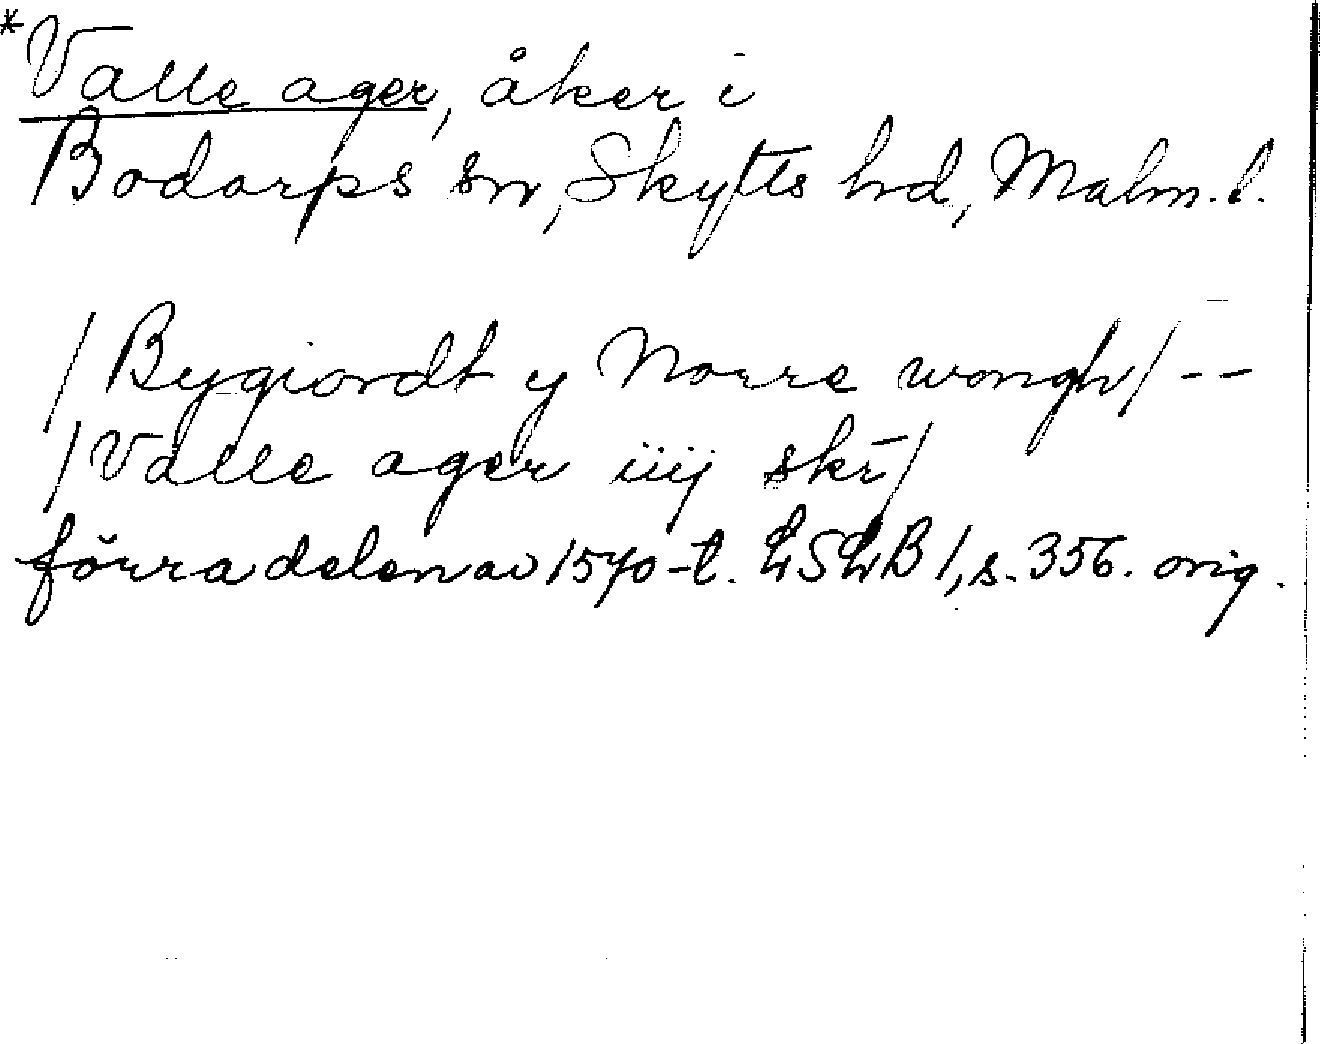 *Valle ager, åker i
Bodarps sn, Skytts hd, Malm. l.
/Bygiordt y Norre wongh/ --
/Valle ager iiij skr̄/
förra delen av 1570-t. LSLB 1, s. 356. orig.